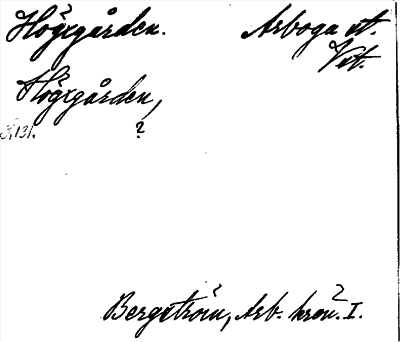 Högsgården. Arboga st.
Vst.
Högsgården,
S. 131. ?
Bergström, Arb. krön. I.